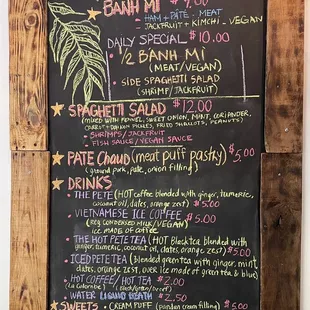 BÁNH MÌ $9.00
HAM + PÂTÉ - MEAT
JACKFRUIT + KIMCHI - VEGAN
DAILY SPECIAL $10.00
1/2 BÁNH MÌ
(MEAT/VEGAN)
SIDE SPAGHETTI SALAD
(SHRIMP/JACKFRUIT)
SPAGHETTI SALAD $12.00
(MIXED WITH FENNEL, SWEET ONION, MINT, CORIANDER,
CARROT + DAIKON PICKLES, FRIED SHALLOTS, PEANUTS)
SHRIMPS/JACKFRUIT
FISH SAUCE/VEGAN SAUCE
PATE Chaud (meat puff pastry) $5.00
(ground pork, pate, onion filling)
DRINKS
THE PETE (HOT coffee blended with ginger, tumeric,
coconut oil, dates, orange zest) $5.00
VIETNAMESE ICE COFFEE $5.00
(REG CONDENSED MILK/VEGAN)
ice made of coffee
THE HOT PETE TEA (HOT Black tea blended with
ginger, tumeric, coconut oil, dates, orange zest) $5.00
ICED PETE TEA (Blended green tea with ginger, mint,
dates, orange zest, over ice made of green tea & blue)
HOT COFFEE/HOT TEA $2.00
(La Colombe) (Black/green/)
WATER LIQUID DEATH $2.50
SWEETS · CREAM PUFF (pandan cream filling) $5.00